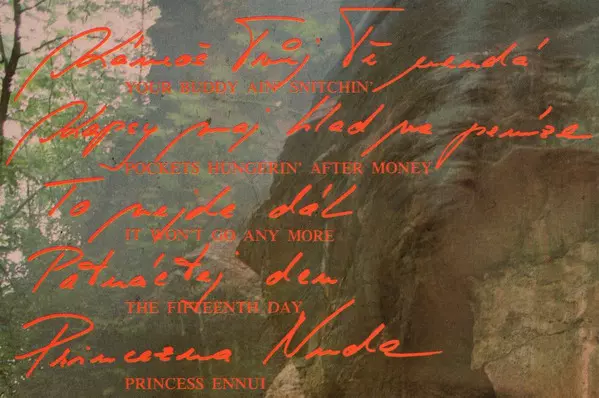 Kámoš Tvůj Tě neudá
YOUR BUDDY AIN' SNITCHIN'
Kapsy maj hlad na peníze
POCKETS HUNGERIN' AFTER MONEY
To nejde dál
IT WON'T GO ANY MORE
Patnáctej den
THE FIFTEENTH DAY
Princezna Nuda
PRINCESS ENNUI